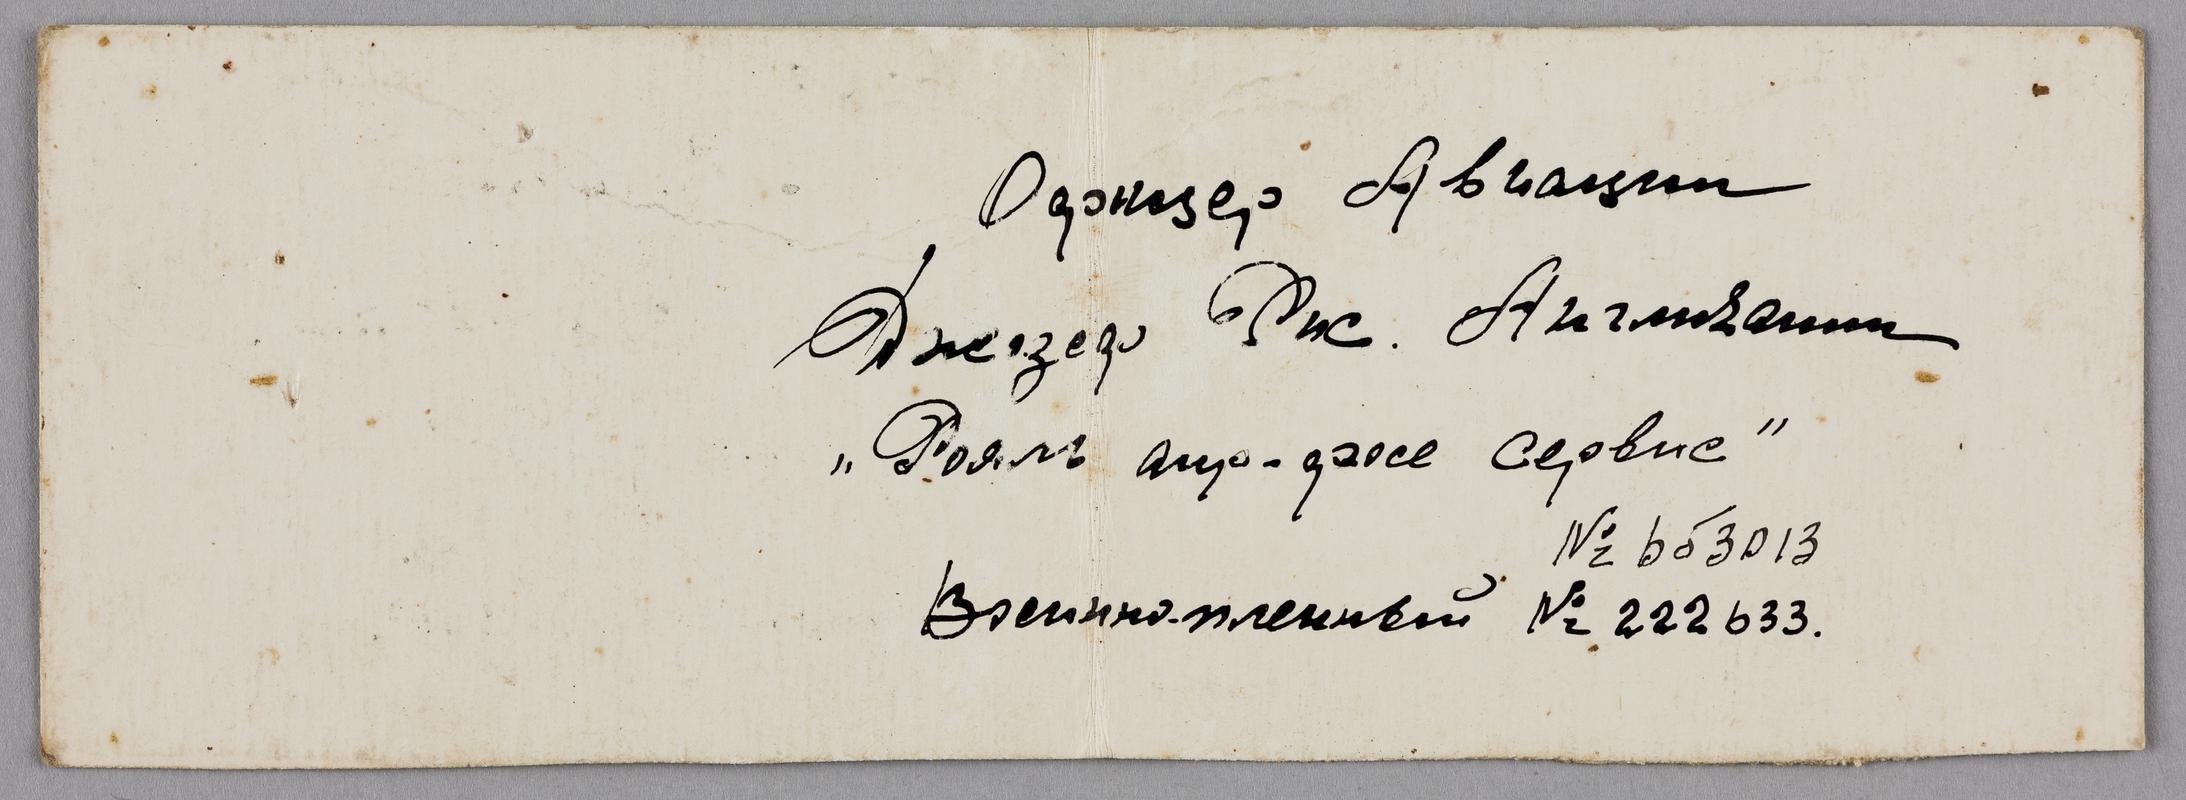 Офицер Авиации
Джозеф Рис. Англичанин
„Роялъ аир-форсе сервис"
№ 653013
Военно-пленный № 222633.